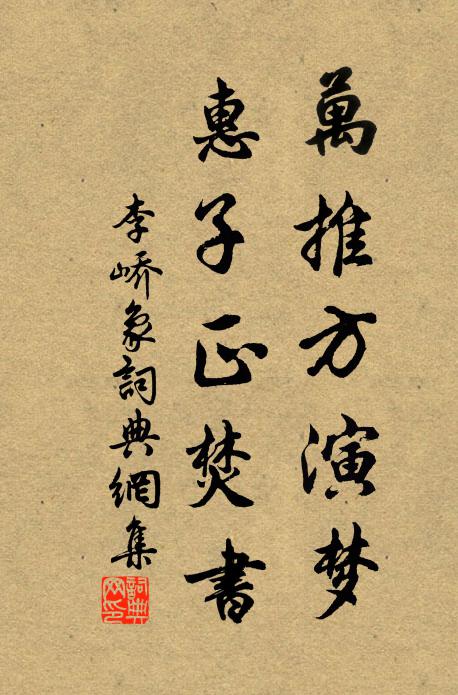 萬推方演梦
惠子正焚書
李峤象詞典網集
詞典網印